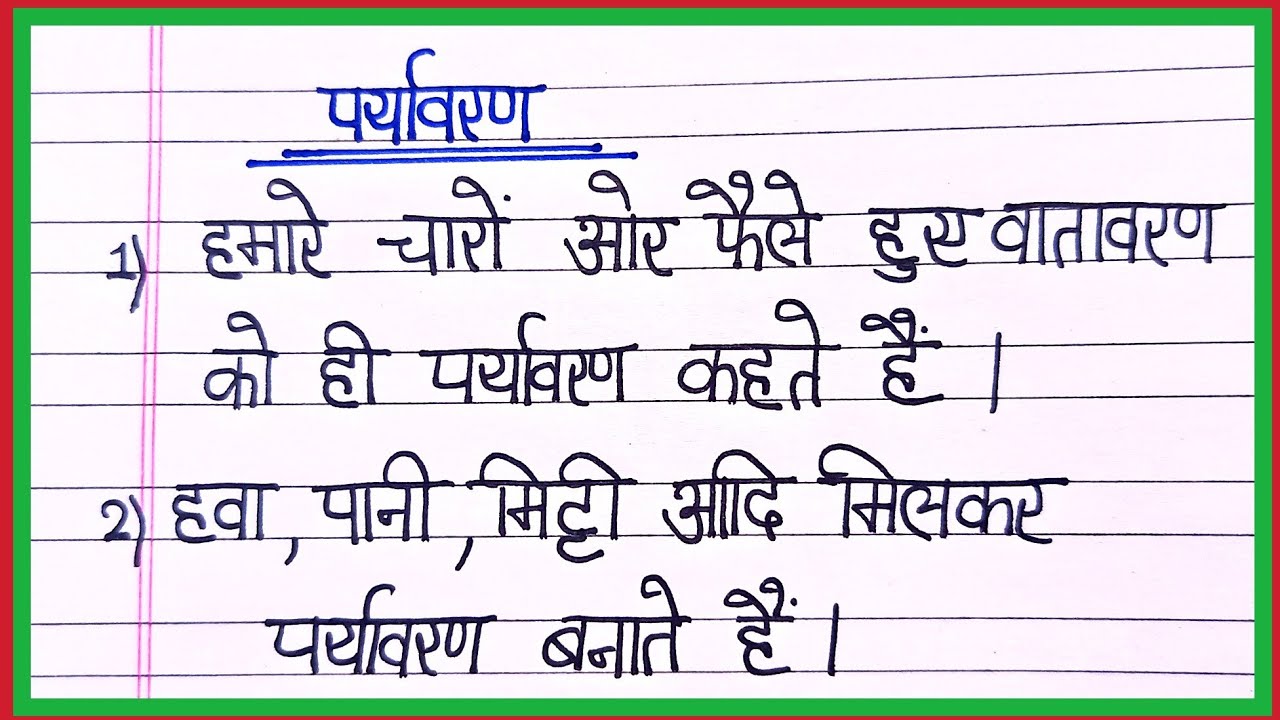 पर्यावरण
1) हमारे चारों ओर फैले हुए वातावरण
को ही पर्यावरण कहते हैं।
2) हवा, पानी, मिट्टी आदि मिलकर
पर्यावरण बनाते हैं।